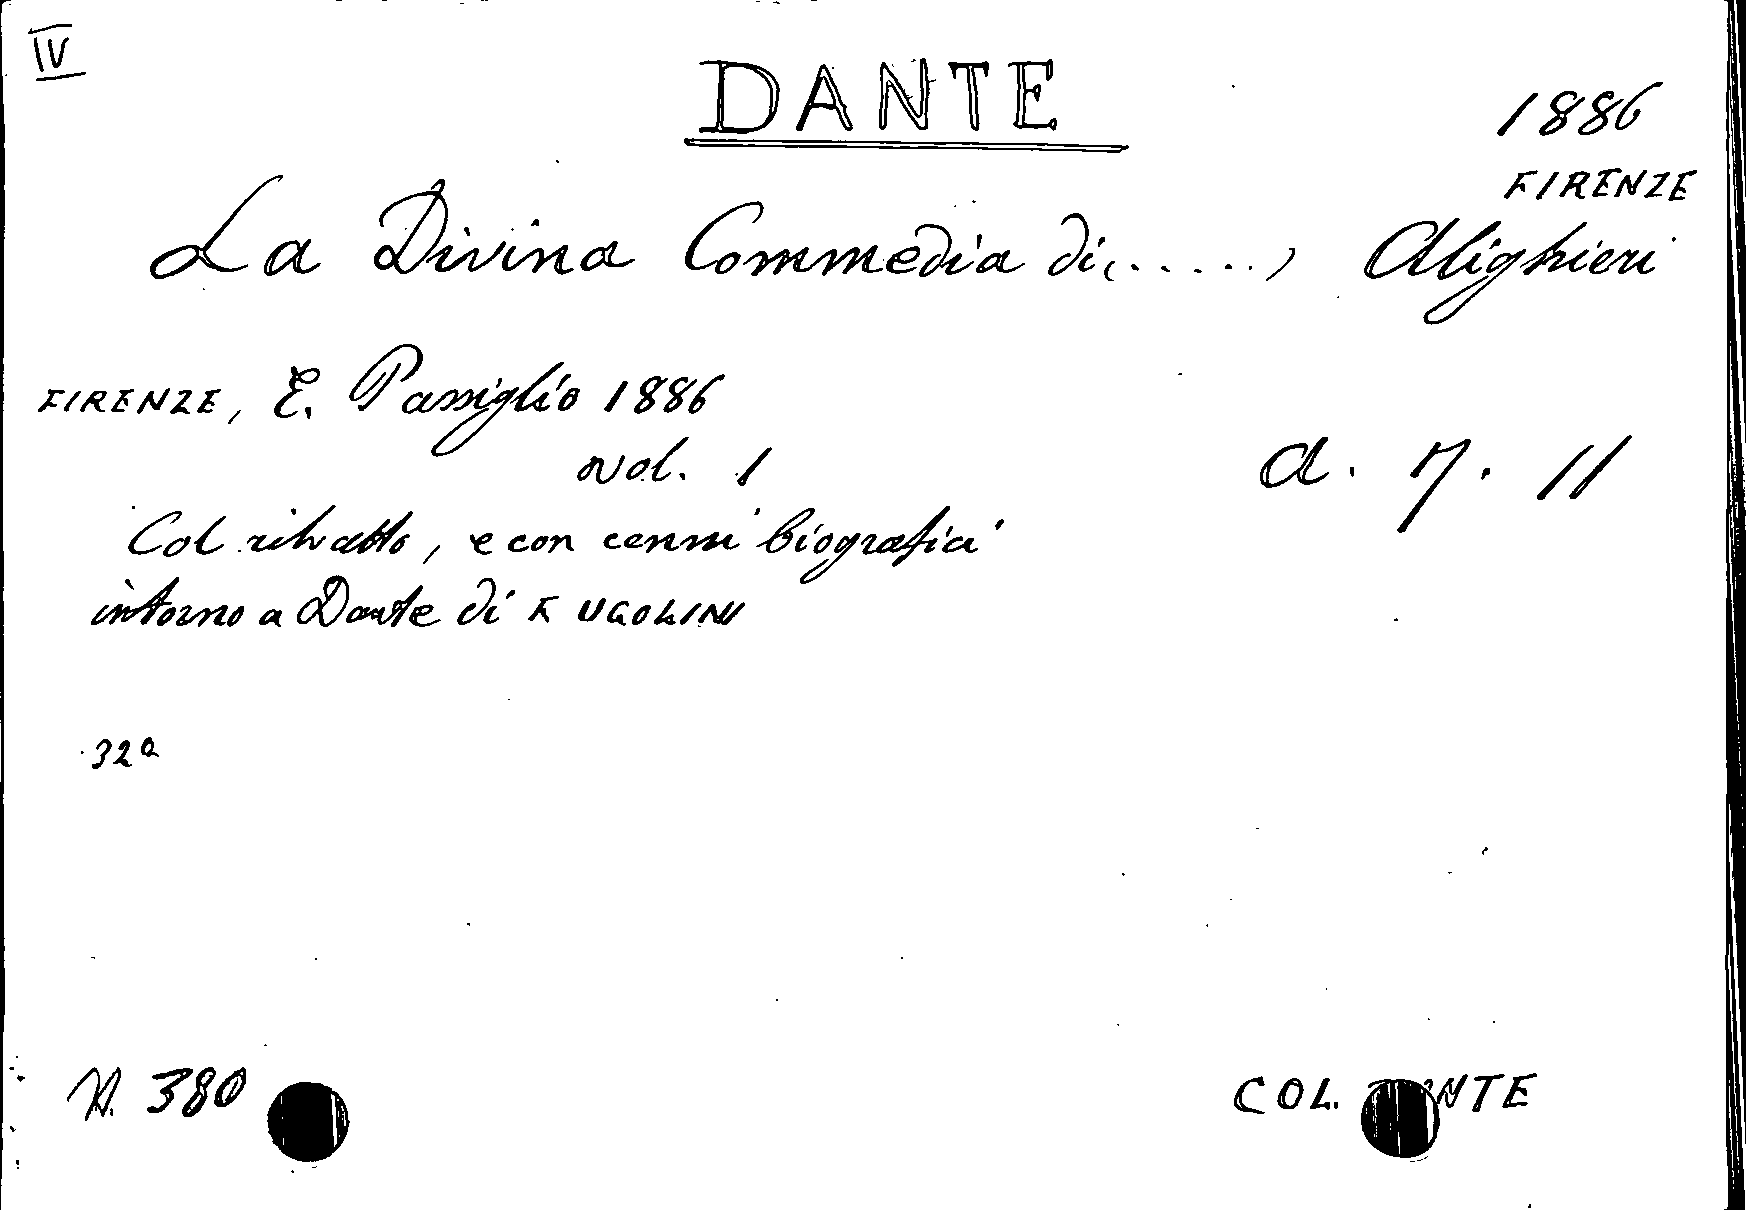 IV
DANTE
1886
FIRENZE
La Divina Commedia di, ....., Alighieri
FIRENZE, E. Passiglio 1886
vol. 1
a. 7. 11
Col ritratto, e con cenni biografici
intorno a Dante di F UGOLINI
32a
N. 380
COL. DANTE